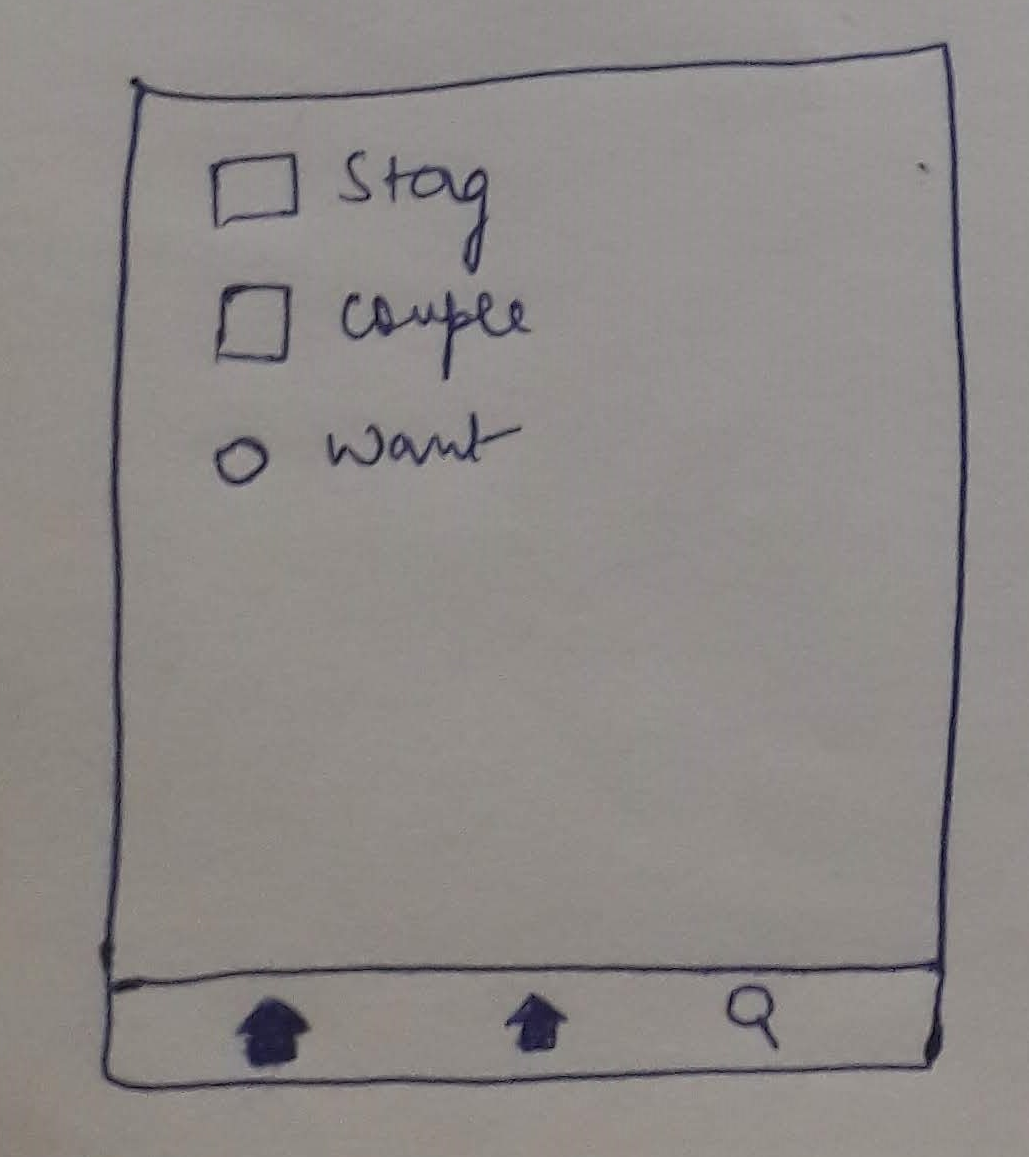 Stag
Couple
Want